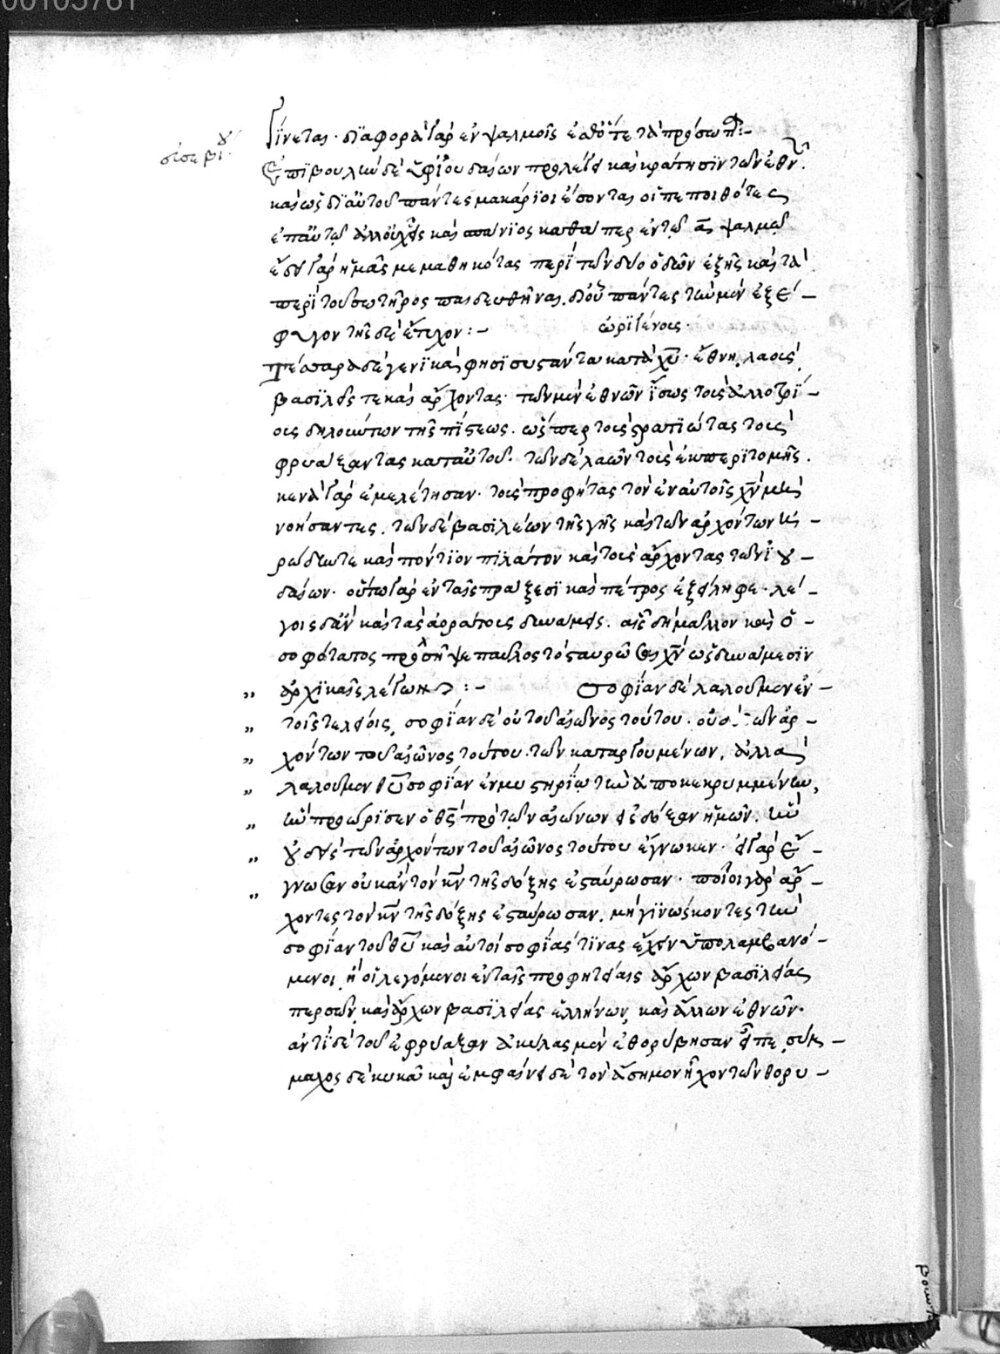 00105761
γίνεται· διάφορα γὰρ ἐν ψαλμοῖς ἐσθότε τὰ πρόσωπα:–
εὐσεβίου
Ἐπιβουλὴν δὲ ὑφ' ἰουδαίων προλέγει καὶ κράτησιν τῶν ἐθνῶν.
καὶ ὡς δι' αὐτοῦ πάντες μακάριοι ἔσονται οἱ πεποιθότες
ἐπ' αὐτῷ καὶ καθάπερ ἐν τῷ α ψαλμῷ
ἔδει γὰρ ἡμᾶς μεμαθηκότας περὶ τῶν δύο ὁδῶν ἑξῆς καὶ τὰ
περὶ τοῦ σωτῆρος παιδευθῆναι. δι' οὗ πάντες τὴν μὲν ἐξέ–
φυγον τῆς δὲ ἔτυχον:– ὠριγένους·
Τέσσαρα δὲ γενικά φησι συστάντα κατὰ χυ· ἔθνη, λαοὺς,
βασιλεῖς τε καὶ ἄρχοντας· τῶν μὲν ἐθνῶν ἴσως τοὺς ἀλλοτρί–
ους δηλούντων τῆς πίστεως. ὥσπερ τοὺς στρατιώτας τοὺς
φρυάξαντας κατ' αὐτοῦ. τῶν δὲ λαῶν τοὺς ἐκ περιτομῆς.
κενὰ γὰρ ἐμελέτησαν· τοὺς προφήτας τὸν ἐν αὐτοῖς χν μὴ
νοήσαντες. τῶν δὲ βασιλέων τῆς γῆς καὶ τῶν ἀρχόντων ἡ–
ρώδην τε καὶ πόντιον πιλάτον καὶ τοὺς ἄρχοντας τῶν ἰου–
δαίων· οὕτω γὰρ ἐν ταῖς πράξεσι καὶ πέτρος ἐξείληφε· λέ–
γοις δ' ἂν καὶ τὰς ἀοράτους δυνάμεις. δὴ μᾶλλον καὶ ὁ–
σοφώτατος παῦλος τὸ σταυρῶσαι χν ὡς δυνάμεσιν
ἀρχικαῖς λέγων:– σοφίαν δὲ λαλοῦμεν ἐν–
τοῖς τελείοις, σοφίαν δὲ οὐ τοῦ αἰῶνος τούτου. οὐδὲ τῶν ἀρ–
χόντων τοῦ αἰῶνος τούτου. τῶν καταργουμένων, ἀλλὰ
λαλοῦμεν θυ σοφίαν ἐν μυστηρίῳ τὴν ἀποκεκρυμμένην,
ἣν προώρισεν ὁ θς πρὸ τῶν αἰώνων εἰς δόξαν ἡμῶν, ἣν
οὐδεὶς τῶν ἀρχόντων τοῦ αἰῶνος τούτου ἔγνωκεν· εἰ γὰρ ἔ–
γνωσαν οὐκ ἂν τὸν κν τῆς δόξης ἐσταύρωσαν· ποῖοι γὰρ ἄρ–
χοντες τὸν κν τῆς δόξης ἐσταύρωσαν, μὴ γινώσκοντες τὴν
σοφίαν τοῦ θυ καὶ αὐτοὶ σοφίας τινας ἔχειν ὑπολαμβανό–
μενοι, ἢ οἱ λεγόμενοι ἐν ταῖς προφητείαις ἄρχων βασιλείας
περσῶν, καὶ ἄρχων βασιλείας ἑλλήνων, καὶ ἄλλων ἐθνῶν·
ἀντὶ δὲ τοῦ ἐφρύαξαν ἀκύλας μὲν ἐθορύβησαν εἶπε, σύμ–
μαχος δὲ κυκᾷ καὶ ἐμφαίνει δὲ τὸν ἄσημον ἦχον τῶν θορυ–